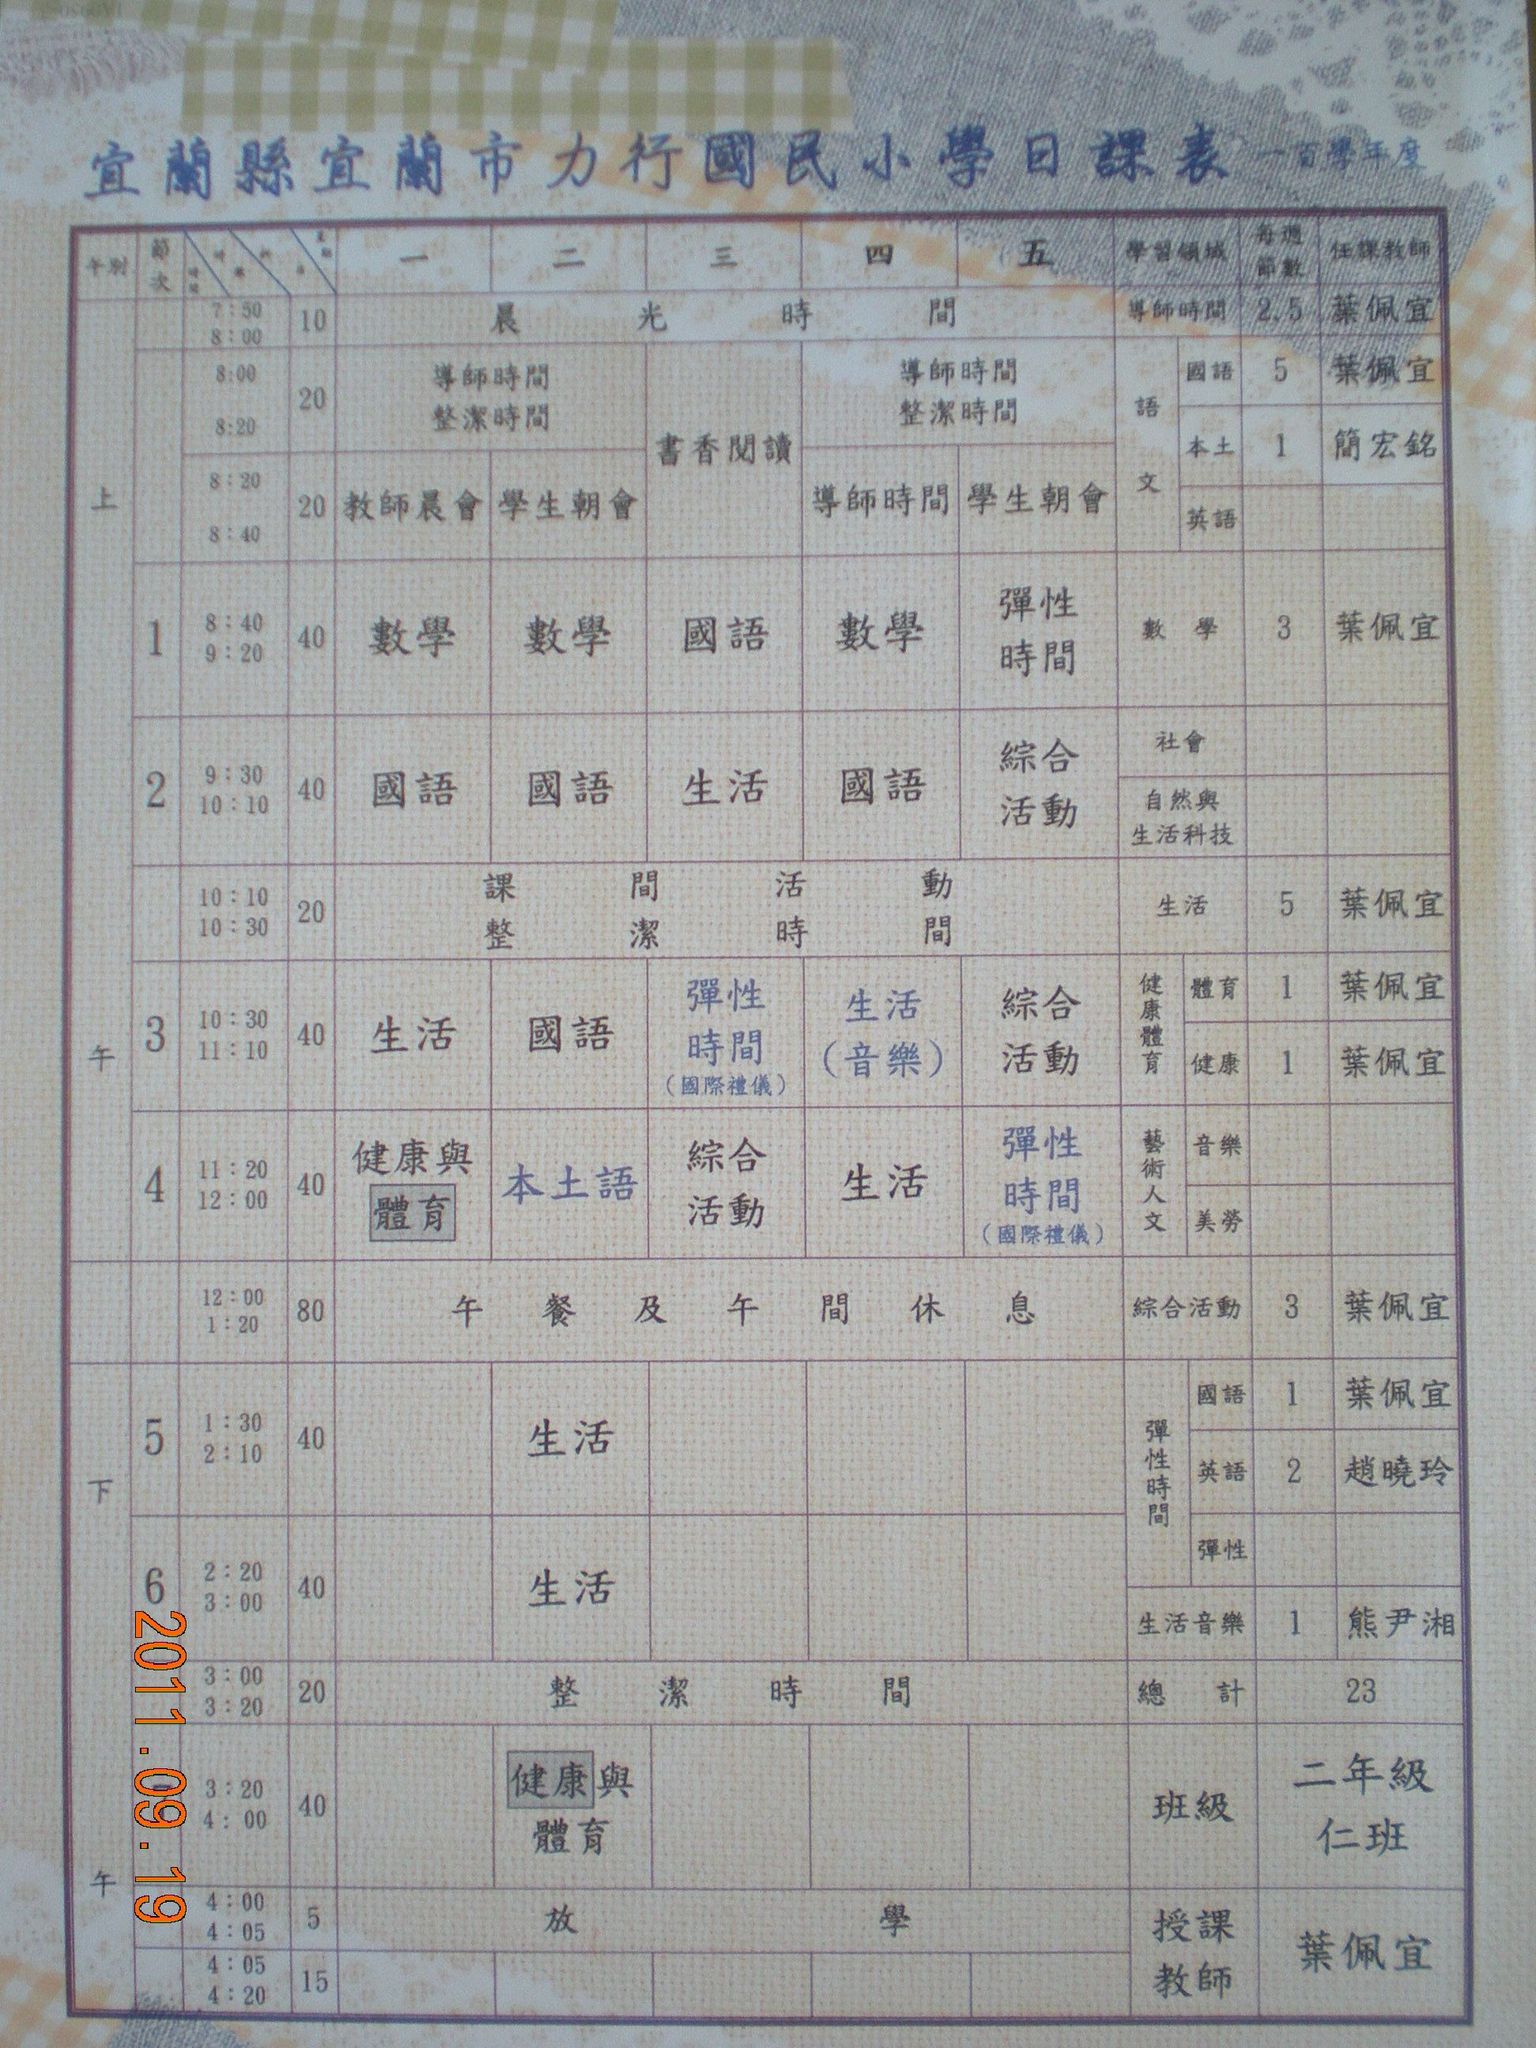 宜蘭縣宜蘭市力行國民小學日課表 一百學年度
午別 節次 一 二 三 四 五 學習領域 每週節數 任課教師
7:50 8:00 10 晨光時間 導師時間 2.5 葉佩宜
8:00 8:20 20 導師時間 整潔時間 書香閱讀 導師時間 整潔時間 語文 國語 5 葉佩宜
本土 1 簡宏銘
8:20 8:40 20 教師晨會 學生朝會 導師時間 學生朝會 英語
上午
1 8:40 9:20 40 數學 數學 國語 數學 彈性時間 數學 3 葉佩宜
2 9:30 10:10 40 國語 國語 生活 國語 綜合活動 社會
自然與生活科技
10:10 10:30 20 課間活動 整潔時間 生活 5 葉佩宜
3 10:30 11:10 40 生活 國語 彈性時間(國際禮儀) 生活(音樂) 綜合活動 健康體育 體育 1 葉佩宜
健康 1 葉佩宜
4 11:20 12:00 40 健康與體育 本土語 綜合活動 生活 彈性時間(國際禮儀) 藝術人文 音樂
美勞
12:00 1:20 80 午餐及午間休息 綜合活動 3 葉佩宜
下午
5 1:30 2:10 40 生活 彈性時間 國語 1 葉佩宜
英語 2 趙曉玲
6 2:20 3:00 40 生活 彈性
生活音樂 1 熊尹湘
3:00 3:20 20 整潔時間 總計 23
3:20 4:00 40 健康與體育 班級 二年級仁班
4:00 4:05 5 放學 授課教師 葉佩宜
4:05 4:20 15
2011.09.19